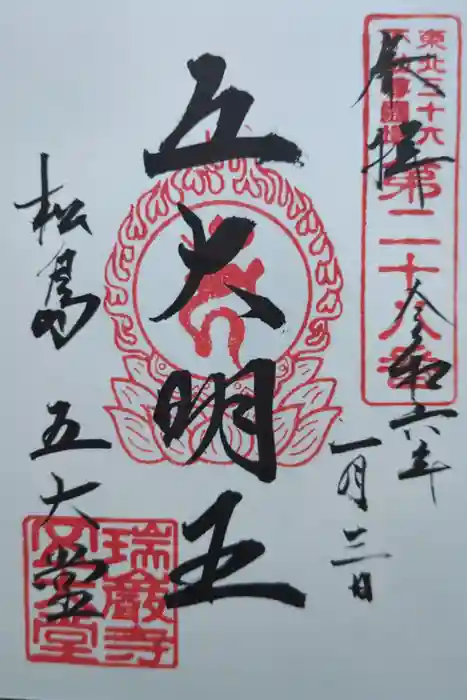 東北三十六
不動尊霊場
第二十八番
奉拝
令和六年
一月三日
五大明王
松島 五大堂
瑞巌寺
五大堂